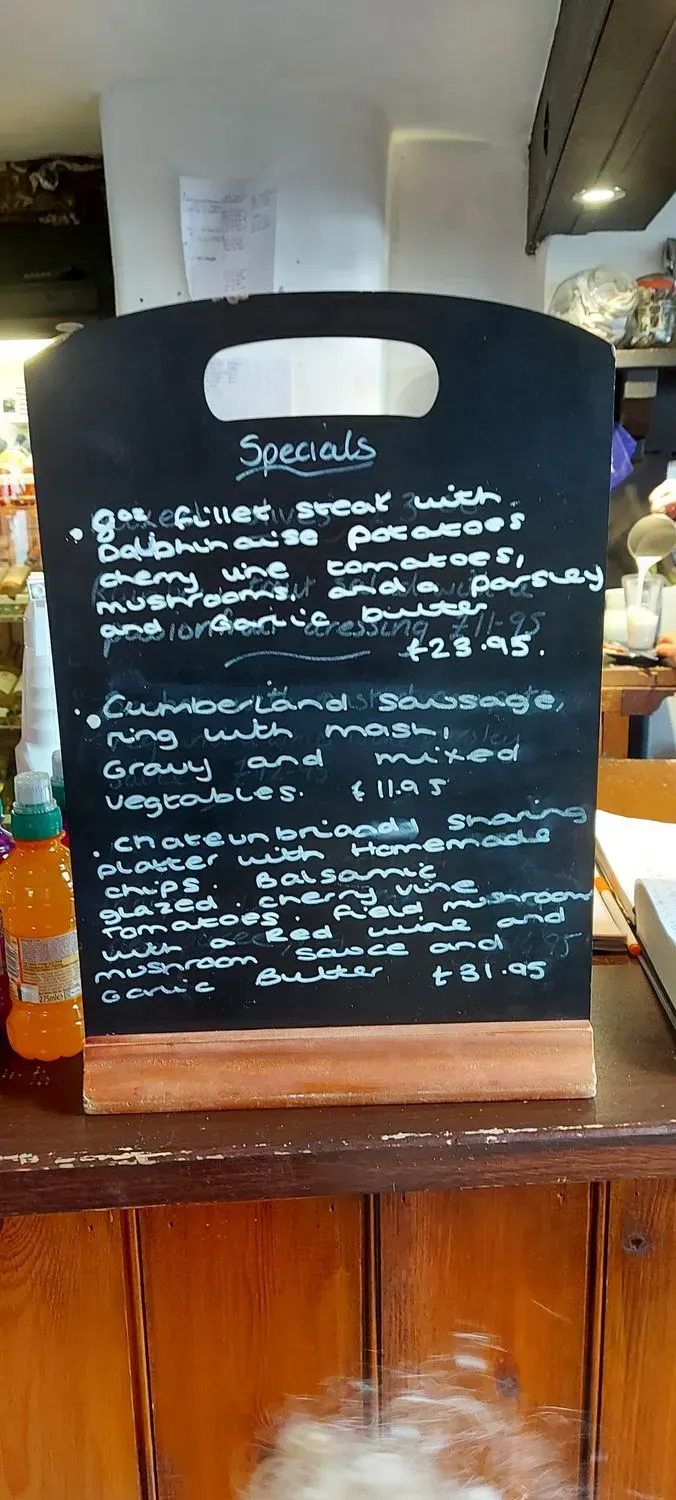 Specials
8oz fillet steak with
Dalphinaise potatoes
cherry vine tomatoes,
mushrooms, and a parsley
and Garlic butter
£23.95.
Cumberland sausage,
ring with mash,
Gravy and mixed
vegtables. £11.95
Chateunbriand sharing
platter with Homemade
chips. Balsamic
glazed cherry vine
Tomatoes. field mushroom
with a Red wine and
mushroom sauce and
Garlic Butter £31.95
275ml